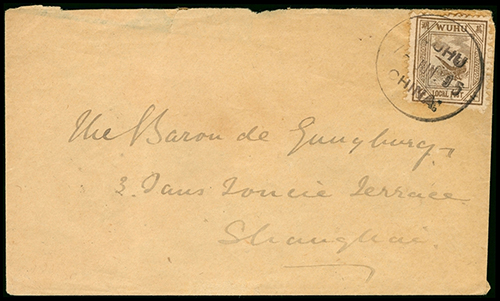 WUHU
LOCAL POST
WUHU
CHINA
The Baron de Gunzburg
3. Sans Soucie Terrace
Shanghai.